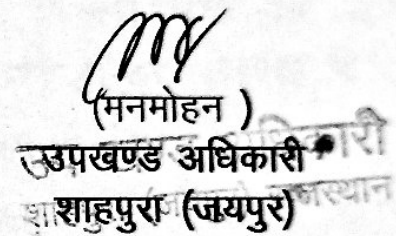 (मनमोहन )
उपखण्ड अधिकारी
शाहपुरा (जयपुर)